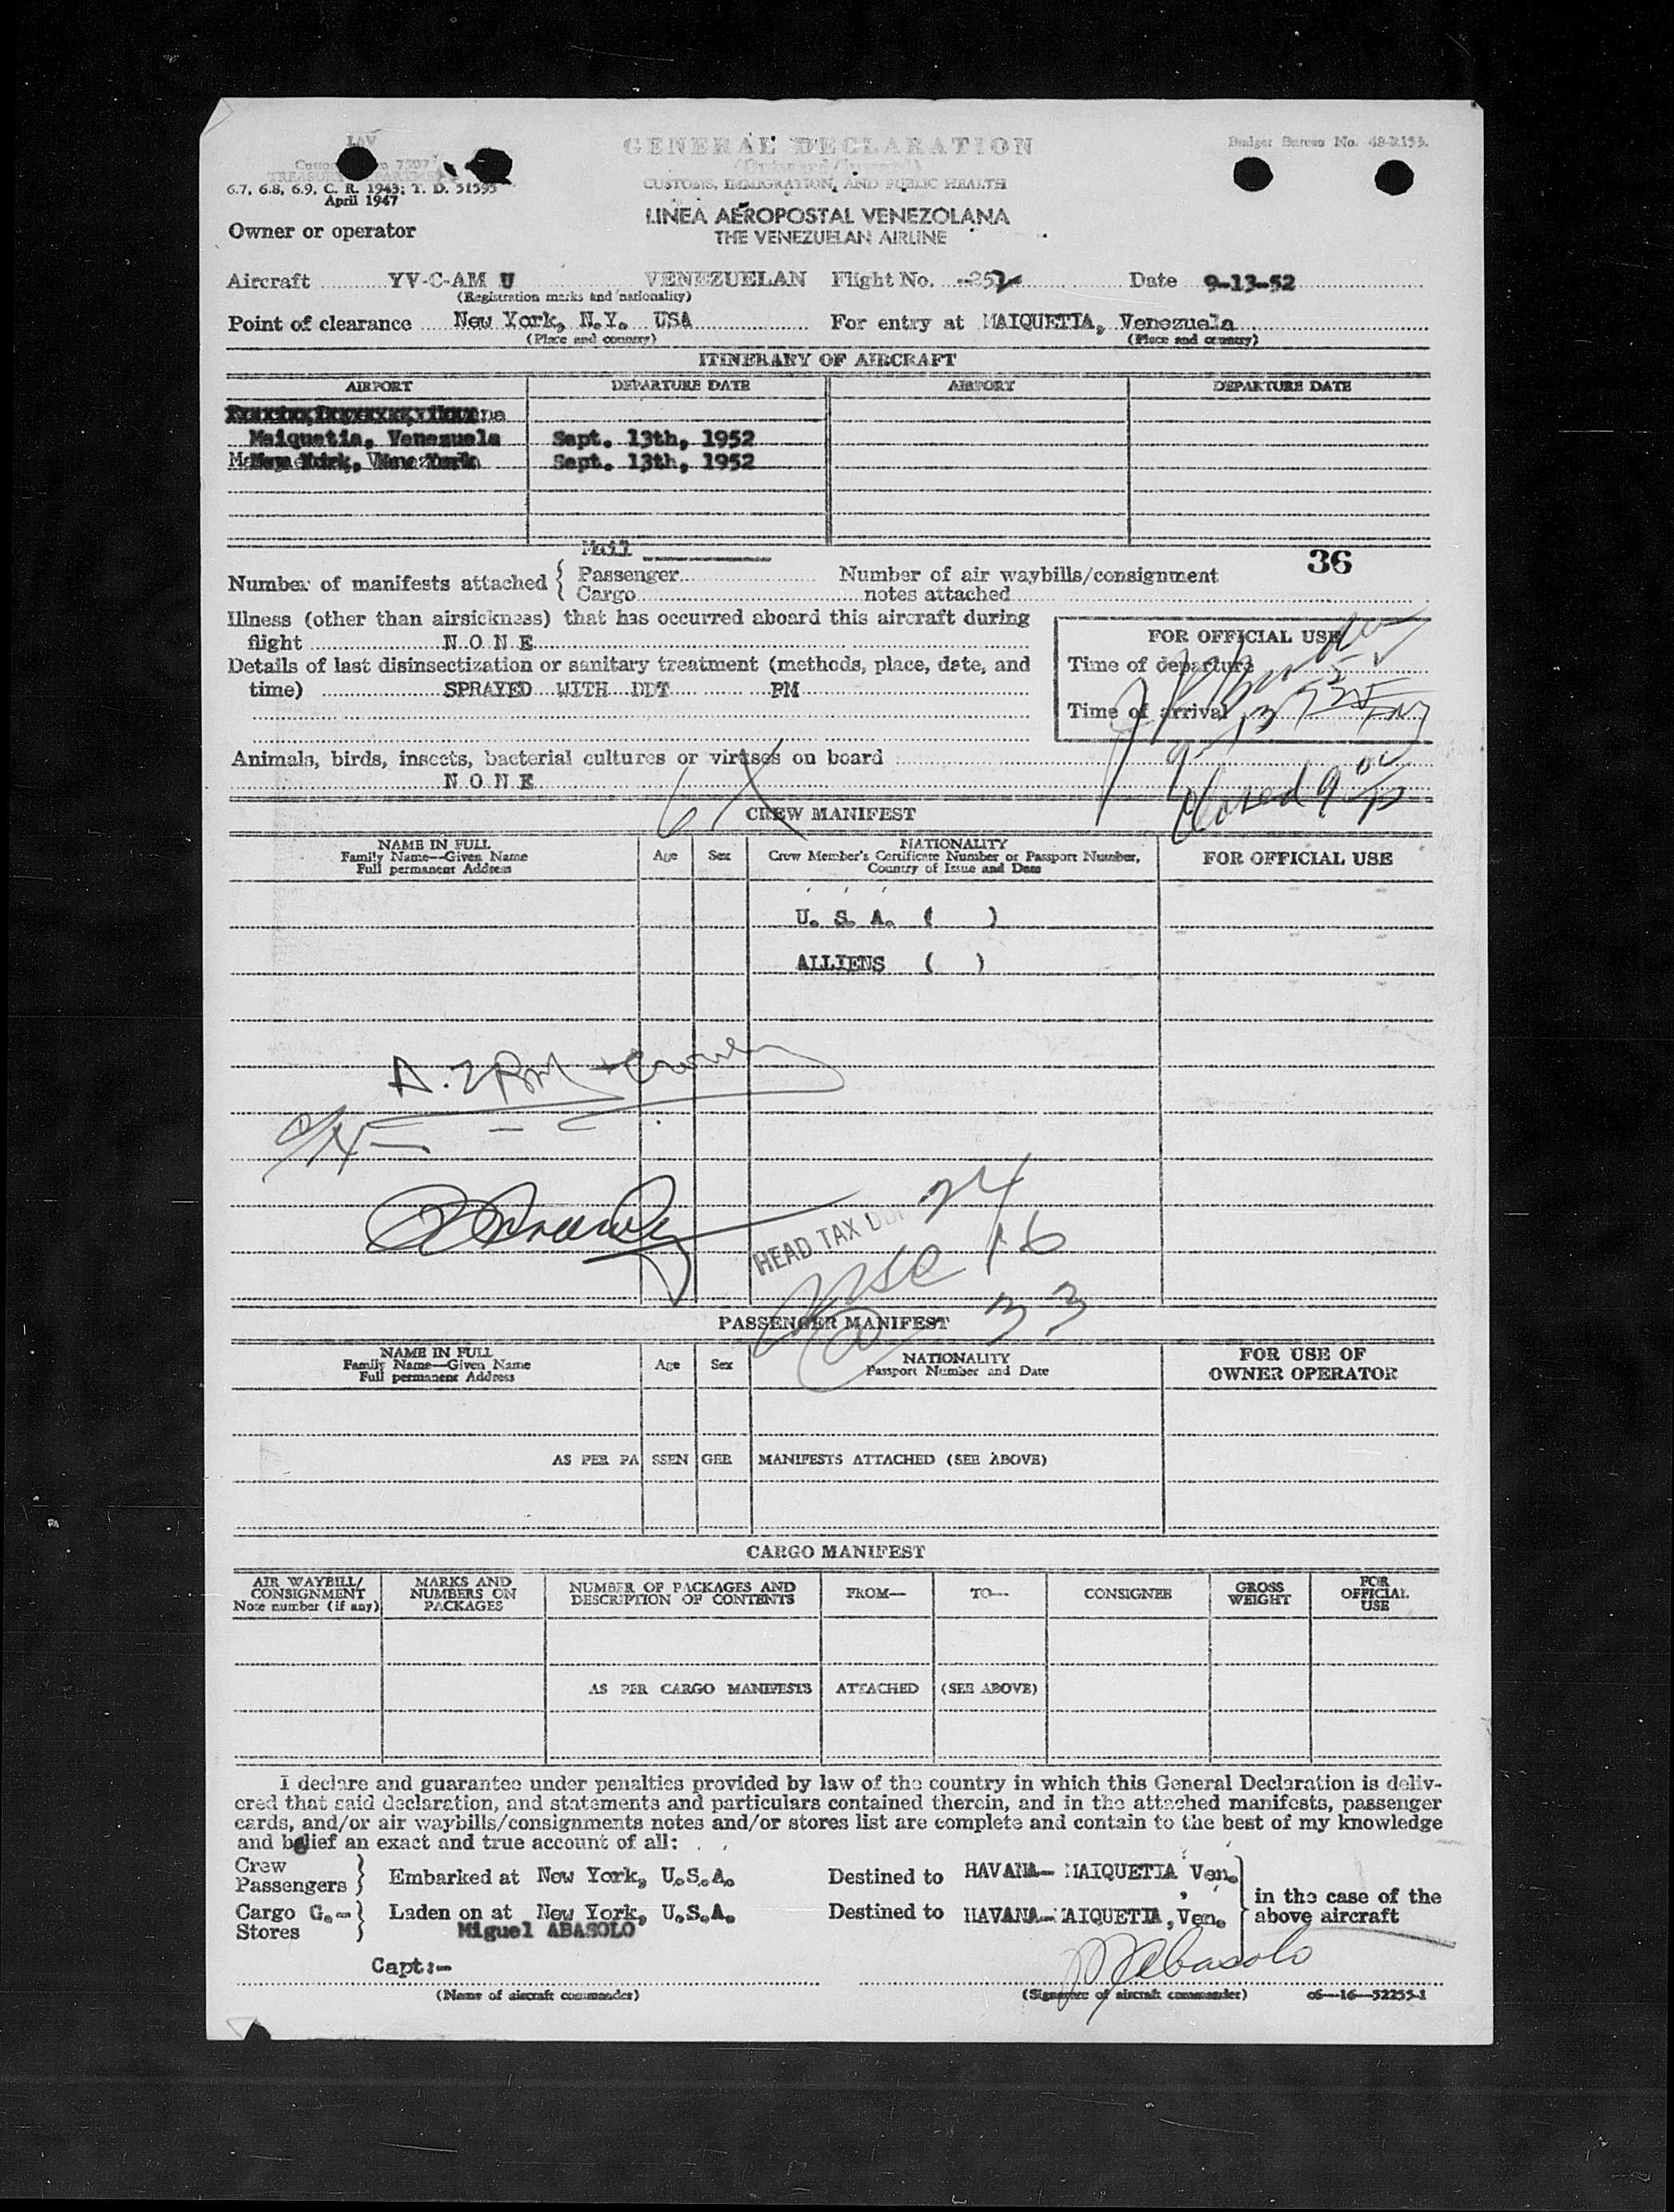 LAV
GENERAL DECLARATION
(Outward/Inward)
Budget Bureau No. 48-R153.
TREASURY DEPARTMENT
CUSTOMS, IMMIGRATION, AND PUBLIC HEALTH
6.7, 6.8, 6.9, C. R. 1943; T. D. 51595
April 1947
LINEA AEROPOSTAL VENEZOLANA
THE VENEZUELAN AIRLINE
Owner or operator
Aircraft YV-C-AM U VENEZUELAN Flight No. Date 9-13-52
(Registration marks and nationality)
Point of clearance New York, N.Y. USA For entry at MAIQUETIA, Venezuela
(Place and country) (Place and country)
ITINERARY OF AIRCRAFT
AIRPORT DEPARTURE DATE AIRPORT DEPARTURE DATE
Maiquetia, Venezuela Sept. 13th, 1952
New York, New York Sept. 13th, 1952
Mail
36
Number of manifests attached { Passenger Number of air waybills/consignment
Cargo notes attached
Illness (other than airsickness) that has occurred aboard this aircraft during
flight N O N E
FOR OFFICIAL USE
Details of last disinsectization or sanitary treatment (methods, place, date, and
time) SPRAYED WITH DDT PM
Time of departure
Time of arrival
Animals, birds, insects, bacterial cultures or viruses on board
N O N E
CREW MANIFEST
NAME IN FULL
Family Name--Given Name
Full permanent Address
Age Sex
NATIONALITY
Crew Member's Certificate Number or Passport Number,
Country of Issue and Date
FOR OFFICIAL USE
U. S. A. ( )
ALLIENS ( )
24
HEAD TAX
16
33
PASSENGER MANIFEST
NAME IN FULL
Family Name--Given Name
Full permanent Address
Age Sex
NATIONALITY
Passport Number and Date
FOR USE OF
OWNER OPERATOR
AS PER PA SSEN GER MANIFESTS ATTACHED (SEE ABOVE)
CARGO MANIFEST
AIR WAYBILL/
CONSIGNMENT
Note number (if any)
MARKS AND
NUMBERS ON
PACKAGES
NUMBER OF PACKAGES AND
DESCRIPTION OF CONTENTS
FROM— TO— CONSIGNEE
GROSS
WEIGHT
FOR
OFFICIAL
USE
AS PER CARGO MANIFESTS ATTACHED (SEE ABOVE)
I declare and guarantee under penalties provided by law of the country in which this General Declaration is deliv-
ered that said declaration, and statements and particulars contained therein, and in the attached manifests, passenger
cards, and/or air waybills/consignments notes and/or stores list are complete and contain to the best of my knowledge
and belief an exact and true account of all:
Crew
Passengers } Embarked at New York, U.S.A. Destined to HAVANA- MAIQUETIA Ven.
in the case of the
above aircraft
Cargo G.-
Stores } Laden on at New York, U.S.A. Destined to HAVANA-MAIQUETIA, Ven.
Miguel ABASOLO
Capt:- M Abasolo
(Name of aircraft commander) (Signature of aircraft commander) 06—16—52255-1